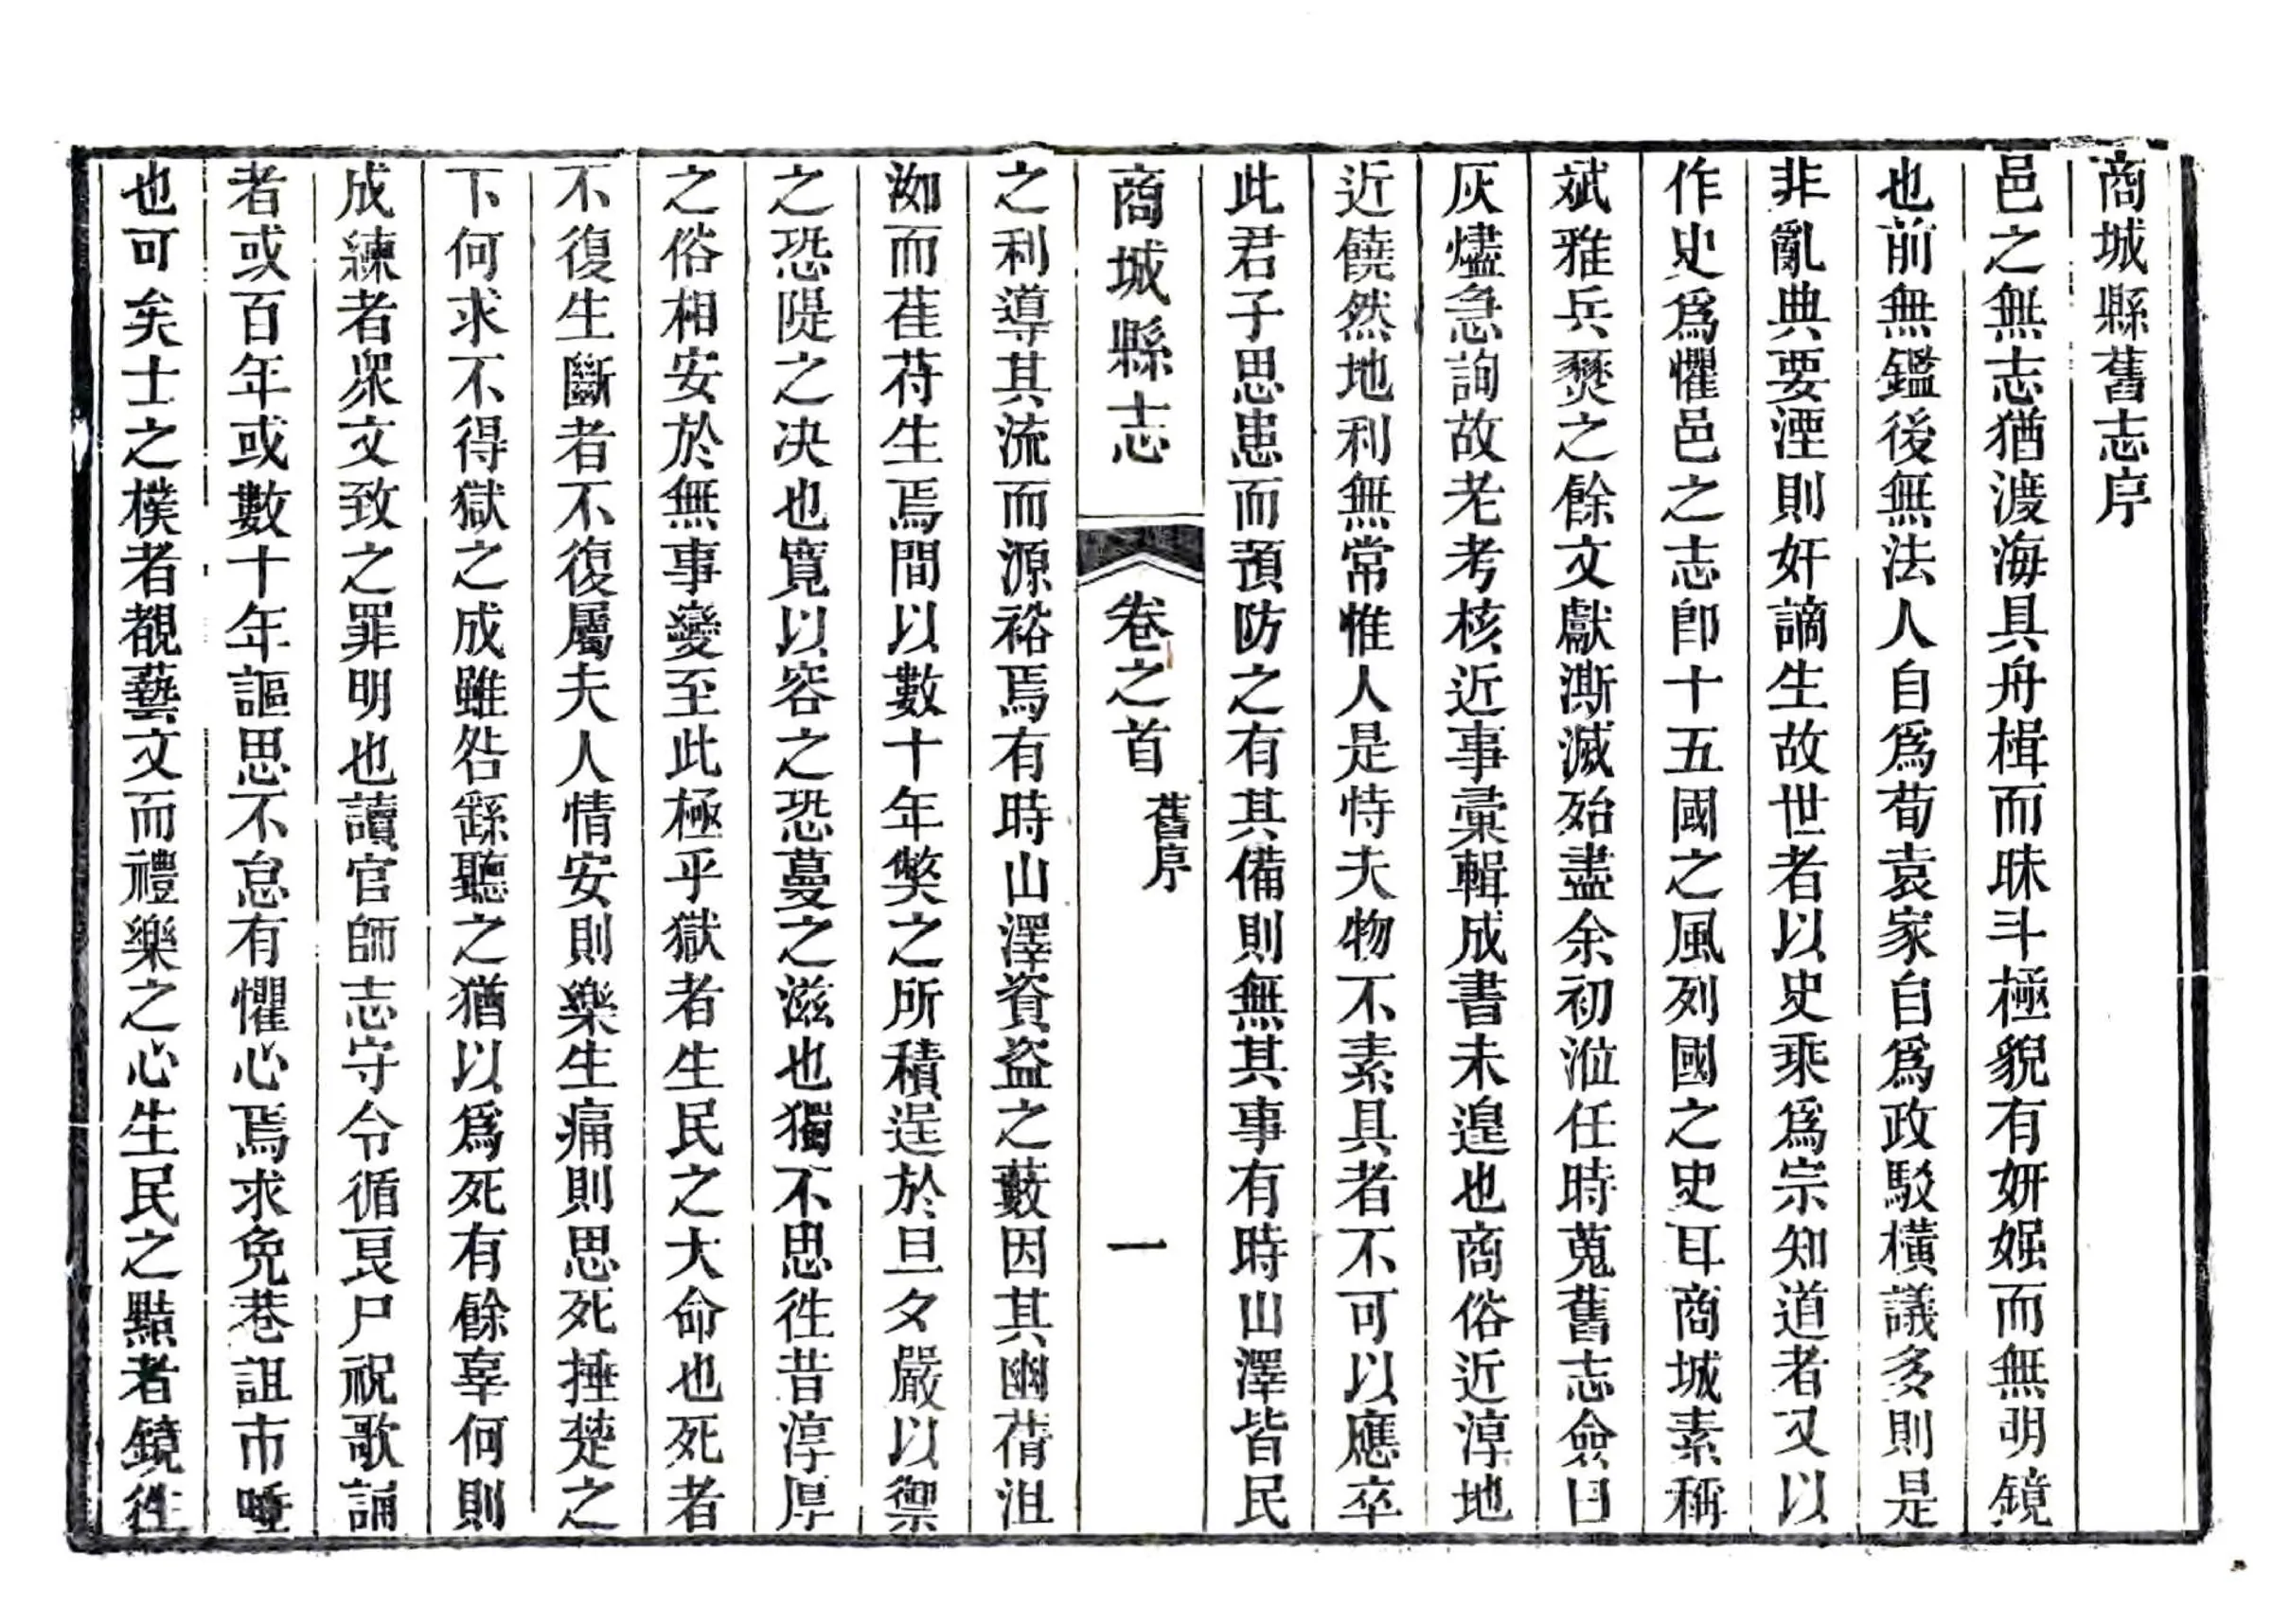 商城縣舊志序
邑之無志猶渡海具舟楫而昧斗極貌有妍媸而無明鏡
也前無鑑後無法人自爲荀袁家自爲政駁橫議多則是
非亂典要湮則奸謫生故世者以史乘爲宗知道者又以
作史爲懼邑之志卽十五國之風列國之史耳商城素稱
斌雅兵燹之餘文獻澌滅殆盡余初涖任時蒐舊志僉曰
灰燼急詢故老考核近事彙輯成書未遑也商俗近淳地
近饒然地利無常惟人是恃夫物不素具者不可以應卒
此君子思患而預防之有其備則無其事有時山澤皆民
商城縣志 卷之首 舊序 一
之利導其流而源裕焉有時山澤資盜之藪因其幽蒨沮
洳而萑苻生焉間以數十年獘之所積逞於旦夕嚴以禦
之恐隄之决也寬以容之恐蔓之滋也獨不思徃昔淳厚
之俗相安於無事變至此極乎獄者生民之大命也死者
不復生斷者不復屬夫人情安則樂生痛則思死捶楚之
下何求不得獄之成雖咎繇聽之猶以爲死有餘辜何則
成練者衆文致之罪明也讀官師志守令循良尸祝歌誦
者或百年或數十年謳思不怠有懼心焉求免巷詛市唾
也可矣士之樸者覩藝文而禮樂之心生民之黠者鏡徃